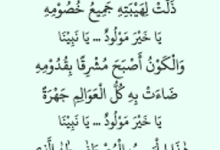 ذَلَّتْ لِهَيْبَتِهِ جَمِيعُ خُصُومِهِ
يَا خَيْرَ مَوْلُودٍ ... يَا نَبِيَّنَا
وَالْكَوْنُ أَصْبَحَ مُشْرِقًا بِقُدُومِهِ
ضَاءَتْ بِهِ كُلُّ الْعَوَالِمِ جَهْرَةً
يَا خَيْرَ مَوْلُودٍ ... يَا نَبِيَّنَا